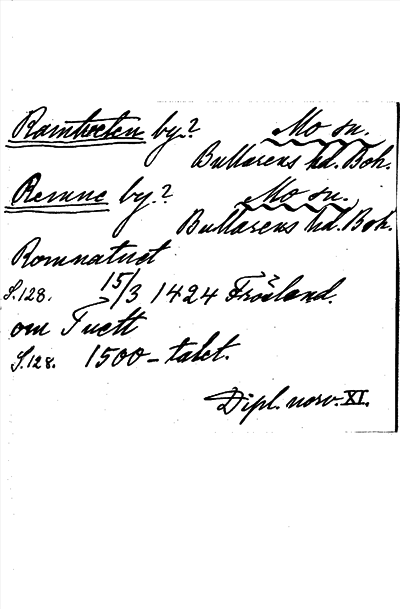 Ramtveten by? Mo sn.
Bullarens hd. Boh.
Remne by? Mo sn.
Bullarens hd. Boh.
Romnatuet
S.128. 15/3 1424 Fröland.
om Tuett
S.128. 1500-talet.
Dipl. norv. XI.